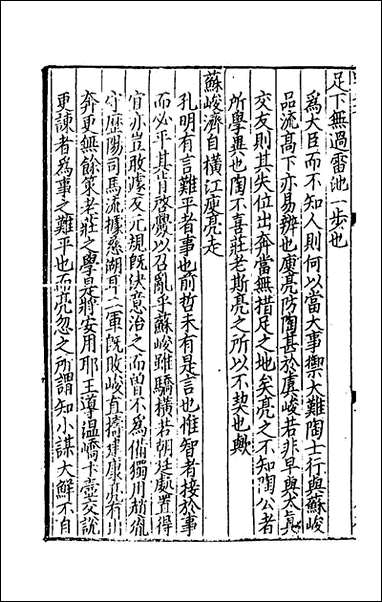 足下無過雷池一步也
為大臣而不知人則何以當大事禦大難陶士行與蘇峻
品流高下亦易辨也庾亮防陶甚於虞峻若非早與太真
交友則其失位出奔當無措足之地矣亮之不知陶公者
所學異也陶不喜莊老斯亮之所以不契也歟
蘇峻濟自橫江庾亮走
孔明有言難平者事也前哲未有是言也惟智者接於事
而必平其肯啓釁以召亂乎蘇峻雖驕橫若朝廷處置得
宜亦豈敢據反元規既決意治之而曽不為備獨用趙胤
守歷陽司馬流據慈湖耳二軍既敗峻直擣建康亮有出
奔更無餘策老莊之學是將安用耶王導溫嶠卞壼交說
更諫者為事之難平也而亮忽之所謂知小謀大鮮不自